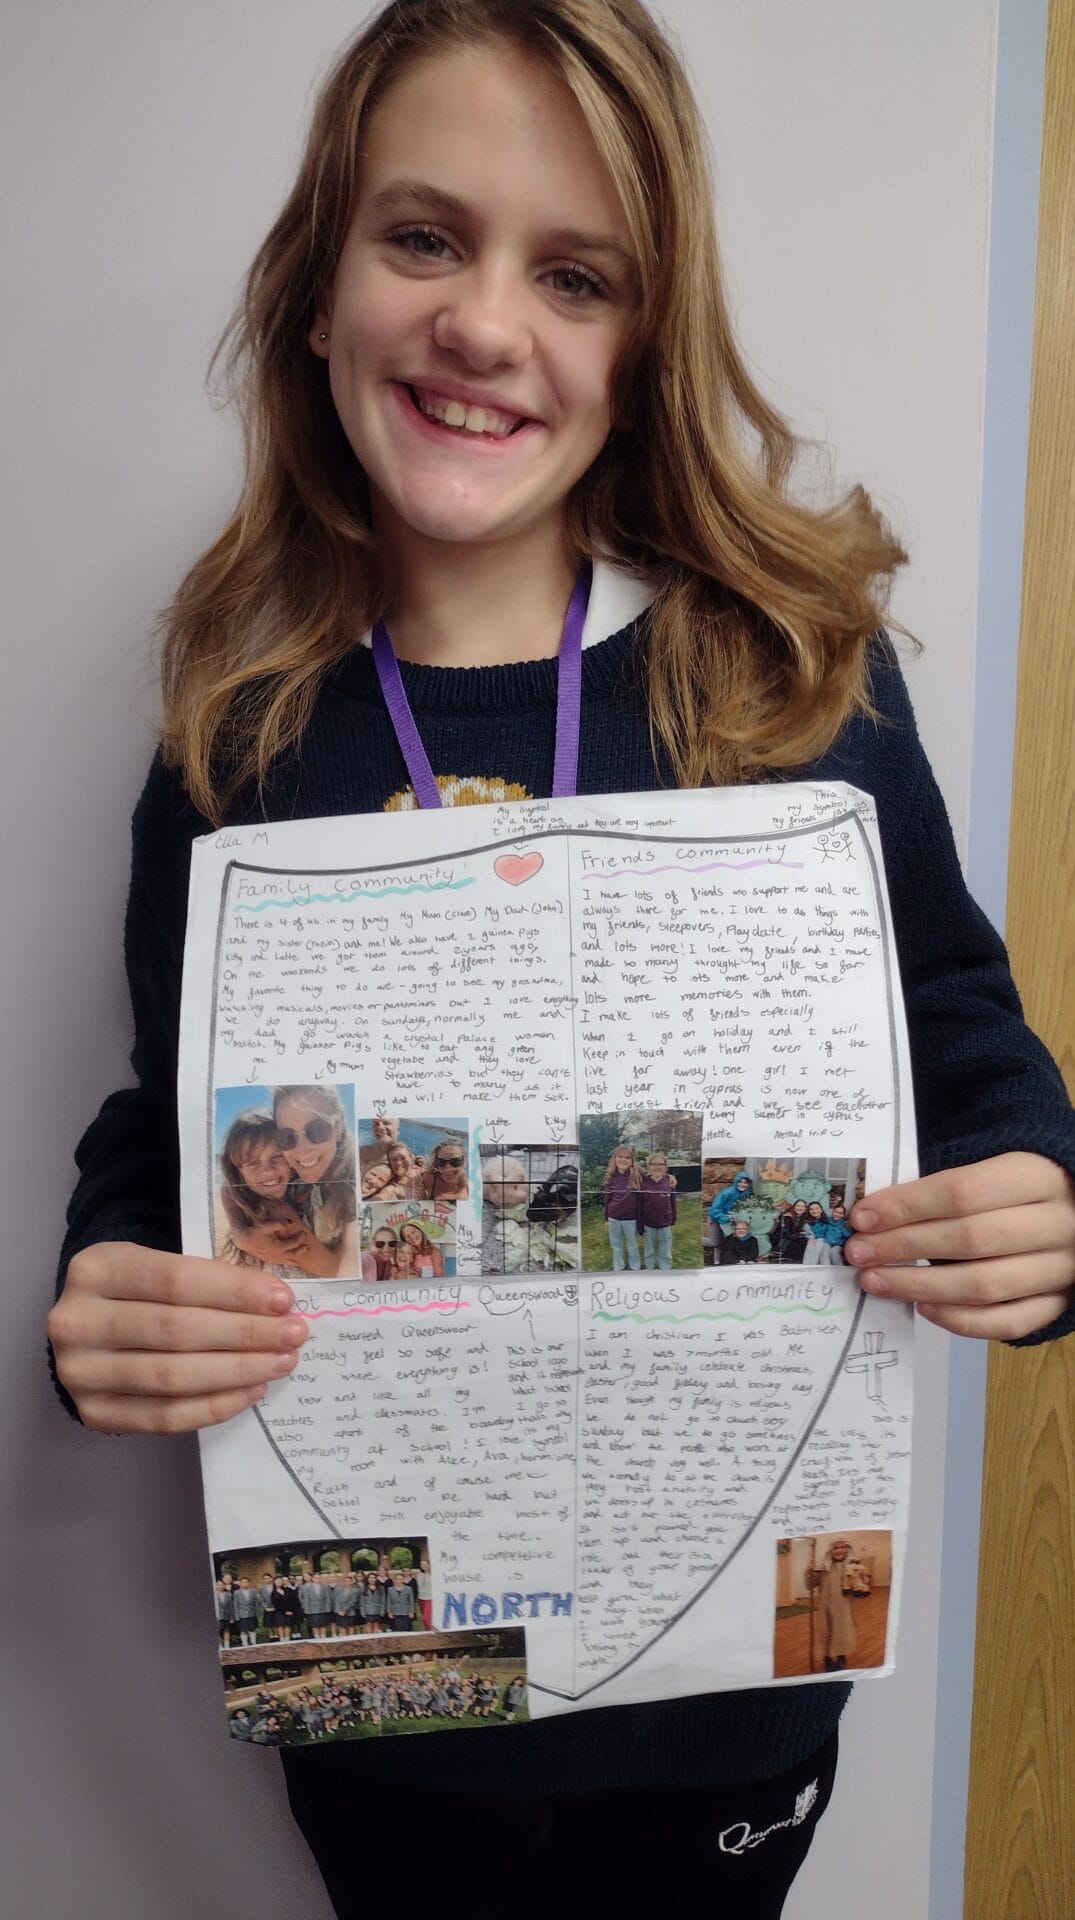 Ella M
My symbol
is a heart as
I love my family and they are very important
This is
my symbol as
my friends
Family community!
There is 4 of us in my family My Mum (Clare) My Dad (John)
and my sister and me! We also have 2 guinea pigs
Kitty and Latte we got them around 2 years ago.
On the weekends we do lots of different things.
My favorite thing to do are - going to see my grandma,
watching musicals, movies or pantomimes but I love everything
we do anyway. On Sundays, normally me and
my dad go watch a crystal Palace women
match. My guinea pigs like to eat any green
vegetable and they love
strawberries but they can't
have to many as it
will make them sick.
me
My mum
my dad
Latte
Kitty
My
sister
Friends community
I have lots of friends who support me and are
always there for me. I love to do things with
my friends, sleepovers, Playdate, birthday parties
and lots more! I love my friends and I have
made so many throught my life so far
and hope to lots more and make
lots more memories with them.
I make lots of friends especially
when I go on holiday and I still
keep in touch with them even if the
live far away! One girl I met
last year in cyprus is now one of
my closest friend and we see eachother
every sumer in cyprus
Hettie
Netball trip
community Queenswood
started Queenswood
already feel so safe and
know where everything is!
I know and like all my
teachers and classmates. I'm
also apart of the boarding
community at School! I love
my room with Alice, Ava,
Ruth and of course me
School can be hard but
its still enjoyable most of
the time.
My competetive
house is
NORTH
This is our
School logo
and it represents
what school
I go to
thats why
its my
symbol
Religous community
I am christian I was Babtised
wen I was 7 months old. Me
and my family celebrate christmas,
easter, good friday and boxing day.
Even though my family is religious
we do not go to church every
sunday but we do go sometimes
and know the people who work at
the church very well. A thing
we normally do at the church is
they host a nativity and
we dress up in costumes
and act out the nativity
It isn't planned you
turn up and choose a
role and their is a
leader of your group
and they
help you what
to say. When
I was
I loved
being a
angel.
This is
the cross its
recalling the
crucifixion of Jesus
death. Its my
symbol for this
section as it
represents christianity
and that is my
religion
Queenswood